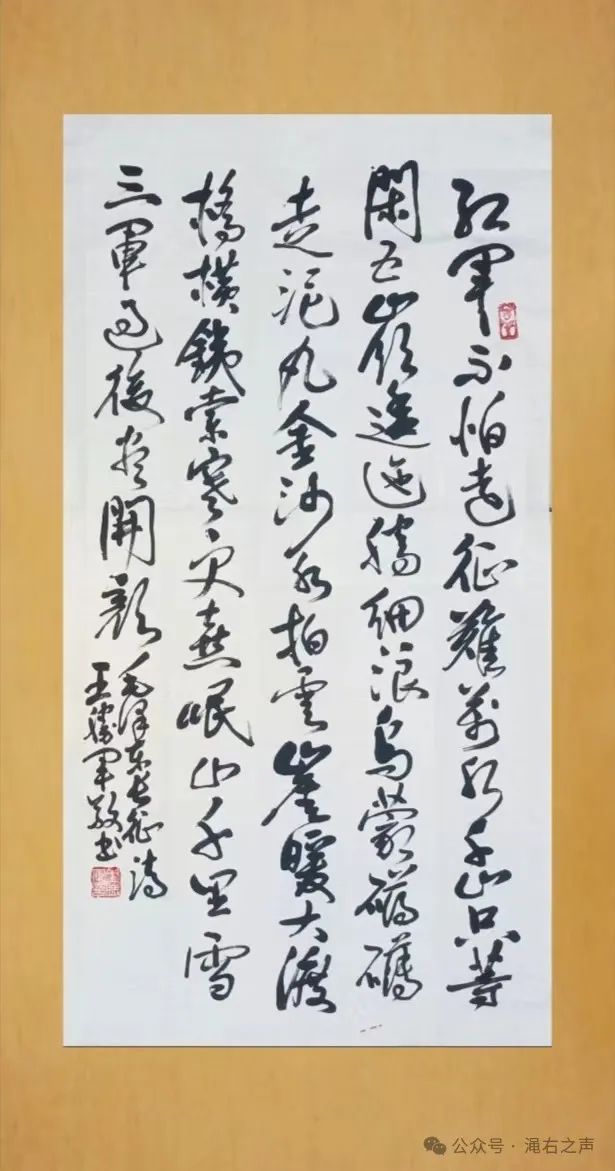 红军不怕遠征難萬水千山只等
閑五嶺逶迤腾细浪乌蒙磅礴
走泥丸金沙水拍雲崖暖大渡
橋横鐵索寒更喜岷山千里雪
三軍過後尽開颜
毛泽东长征诗
王勝军敬书
公众号 · 渑右之声